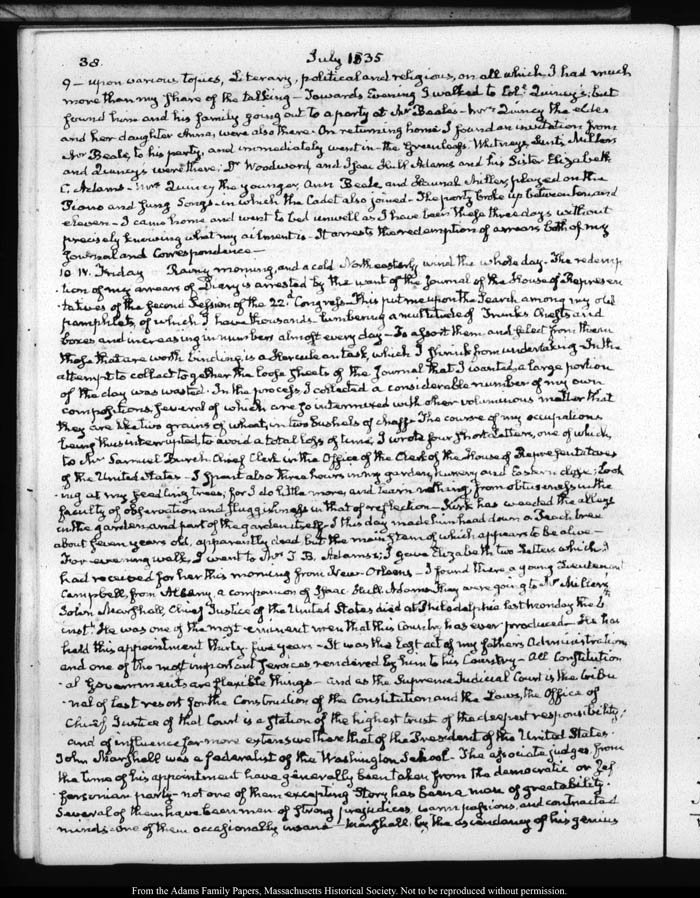 38. July 1835
9 — upon various topics, Literary, political and religious, on all which I had much
more than my share of the talking — Towards Evening I walked to Col.ᵗ Quincy's; but
found him and his family going out to a party at Mr Beale's — Mrs Quincy the elder
and her daughter Anna, were also there. On returning home I found an invitation from
Mr Beale, to his party, and immediately went in — the Greenleafs, Whitneys, Lunts, Millers
and Quincys were there; Dr Woodward, and Isaac Hull Adams and his Sister Elizabeth
C. Adams — Mrs Quincy the younger, Ann Beale, and Miller, played on the
Piano and sung Songs — in which the Cadet also joined — The party broke up between ten and
eleven — I came home and went to bed unwell as I have been these three days without
precisely knowing what my ailment is — It arrests the redemption of arrears both of my
Journal and Correspondence —
10. IV. Friday Rainy morning, and a cold North easterly wind the whole day. The redemp
tion of my arrears of Diary is arrested by the want of the Journal of the House of Represen
tatives of the second Session of the 22ᵈ Congress. This put me upon the search among my old
pamphlets, of which I have thousands lumbering a multitude of Trunks Chests and
boxes and increasing in numbers almost every day — To assort them and select from them
those that are worth binding is a Herculean task, which I shrink from undertaking — In the
attempt to collect together the loose sheets of the Journal that I wanted, a large portion
of the day was wasted. In the process I collected a considerable number of my own
compositions, several of which are so intermixed with other voluminous matter that
they are like two grains of wheat, in two bushels of chaff. The course of my occupations
being thus interrupted, to avoid a total loss of time, I wrote four short Letters, one of which,
to Mr Samuel Burch Chief Clerk in the Office of the Clerk of the House of Representatives
of the United States — I spent also three hours in my garden, nursery and Eastern close; Look
ing at my seedling trees; for I do little more, and learn nothing from obtuseness in the
faculty of observation and sluggishness in that of reflection — Kirk has weeded the alleys
in the garden and part of the garden itself. I this day made him head down a Peach tree
about seven years old, apparently dead but the main stem of which appears to be alive —
For evening walk, I went to Mrs T. B. Adams's; I gave Elizabeth, two Letters which I
had received for her this morning from New-Orleans — I found there a young Lieutenant
Campbell, from Albany, a companion of Isaac Hull Adams. They were going to Mr Miller's
John Marshall, Chief Justice of the United States died at Philadelphia last Monday the 6ᵗʰ
instᵗ. He was one of the most eminent men that this Country has ever produced — He has
held this appointment thirty-five years — It was the last act of my father's Administration
and one of the most important services rendered by him to his Country — All Constitution
al Governments are flexible things — And as the Supreme Judicial Court is the tribu
nal of last resort for the Construction of the Constitution and the Laws, the Office of
Chief Justice of that Court is a Station of the highest trust of the deepest responsibility,
and of influence far more extensive than that of the President of the United States.
John Marshall was a federalist of the Washington School — The associate judges from
the time of his appointment have generally been taken from the democratic or Jef
fersonian party — not one of them excepting Story has been a man of great ability.
Several of them have been men of strong prejudices, warm passions, and contracted
minds — one of them occasionally insane — Marshall, by the ascendancy of his genius
From the Adams Family Papers, Massachusetts Historical Society. Not to be reproduced without permission.